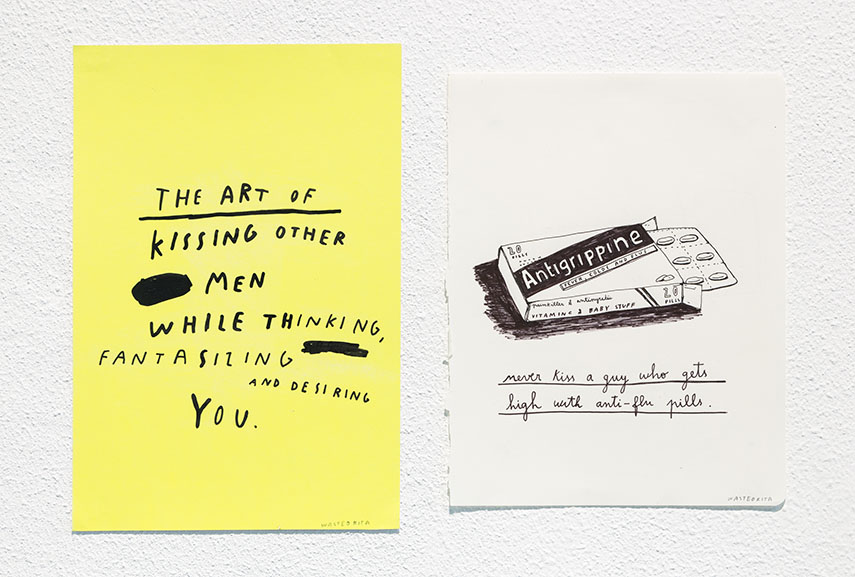 THE ART OF
KISSING OTHER
MEN
WHILE THINKING,
FANTASIZING
AND DESIRING
YOU.
WASTEDRITA
20
PILLS
Antigrippine
FEVER, COLDS AND FLUS
painkiller & antipyretic
VITAMINE & BABY STUFF
20
PILLS
never kiss a guy who gets
high with anti-flu pills.
WASTEDRITA